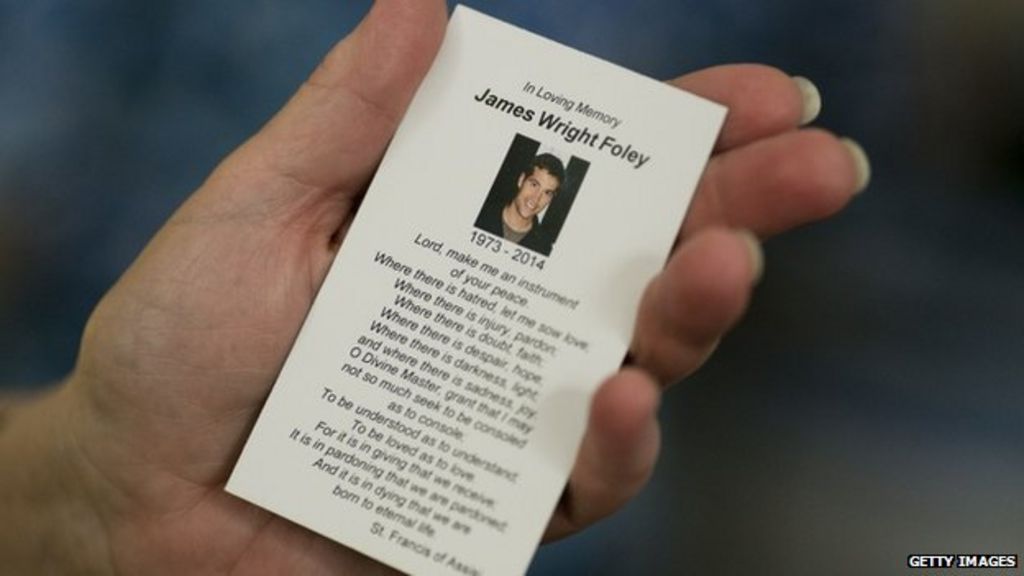 In Loving Memory
James Wright Foley
1973 - 2014
Lord, make me an instrument
of your peace.
Where there is hatred, let me sow love;
Where there is injury, pardon;
Where there is doubt, faith;
Where there is despair, hope,
Where there is darkness, light,
and where there is sadness, joy
O Divine Master, grant that I may
not so much seek to be consoled
as to console;
To be understood as to understand;
To be loved as to love
For it is in giving that we receive;
It is in pardoning that we are pardoned;
And it is in dying that we are
born to eternal life.
St. Francis of Assisi
GETTY IMAGES